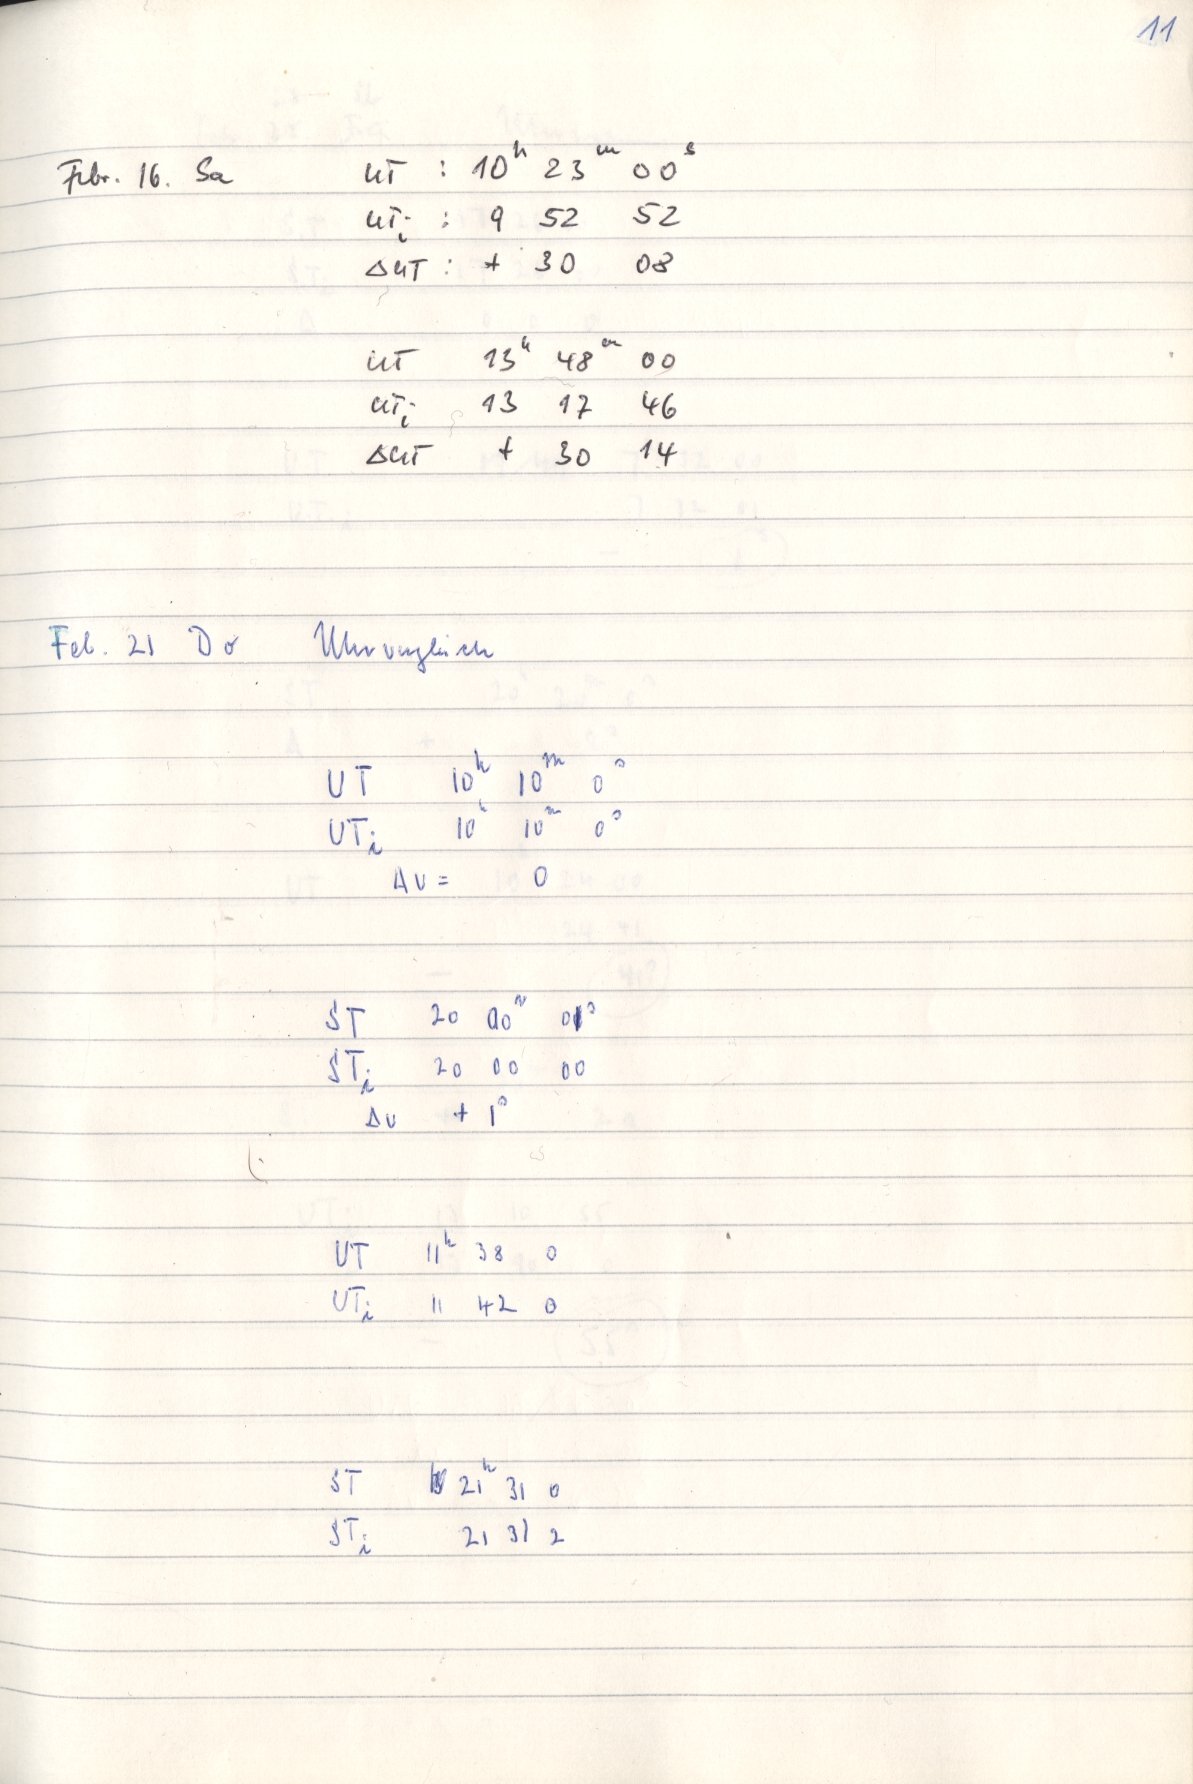 11
Febr. 16. Sa UT : 10ʰ 23ᵐ 00ˢ
UTᵢ : 9 52 52
ΔUT : + 30 08
UT 13ʰ 48ᵐ 00
UTᵢ 13 17 46
ΔUT + 30 14
Feb. 21 Do Uhrvergleich
UT 10ʰ 10ᵐ 0ˢ
UTᵢ 10ʰ 10ᵐ 0ˢ
Δu = 0
ST 20 00ᵐ 01ˢ
STᵢ 20 00 00
Δu + 1ˢ
UT 11ʰ 38 0
UTᵢ 11 42 0
ST 21ʰ 31 0
STᵢ 21 31 2